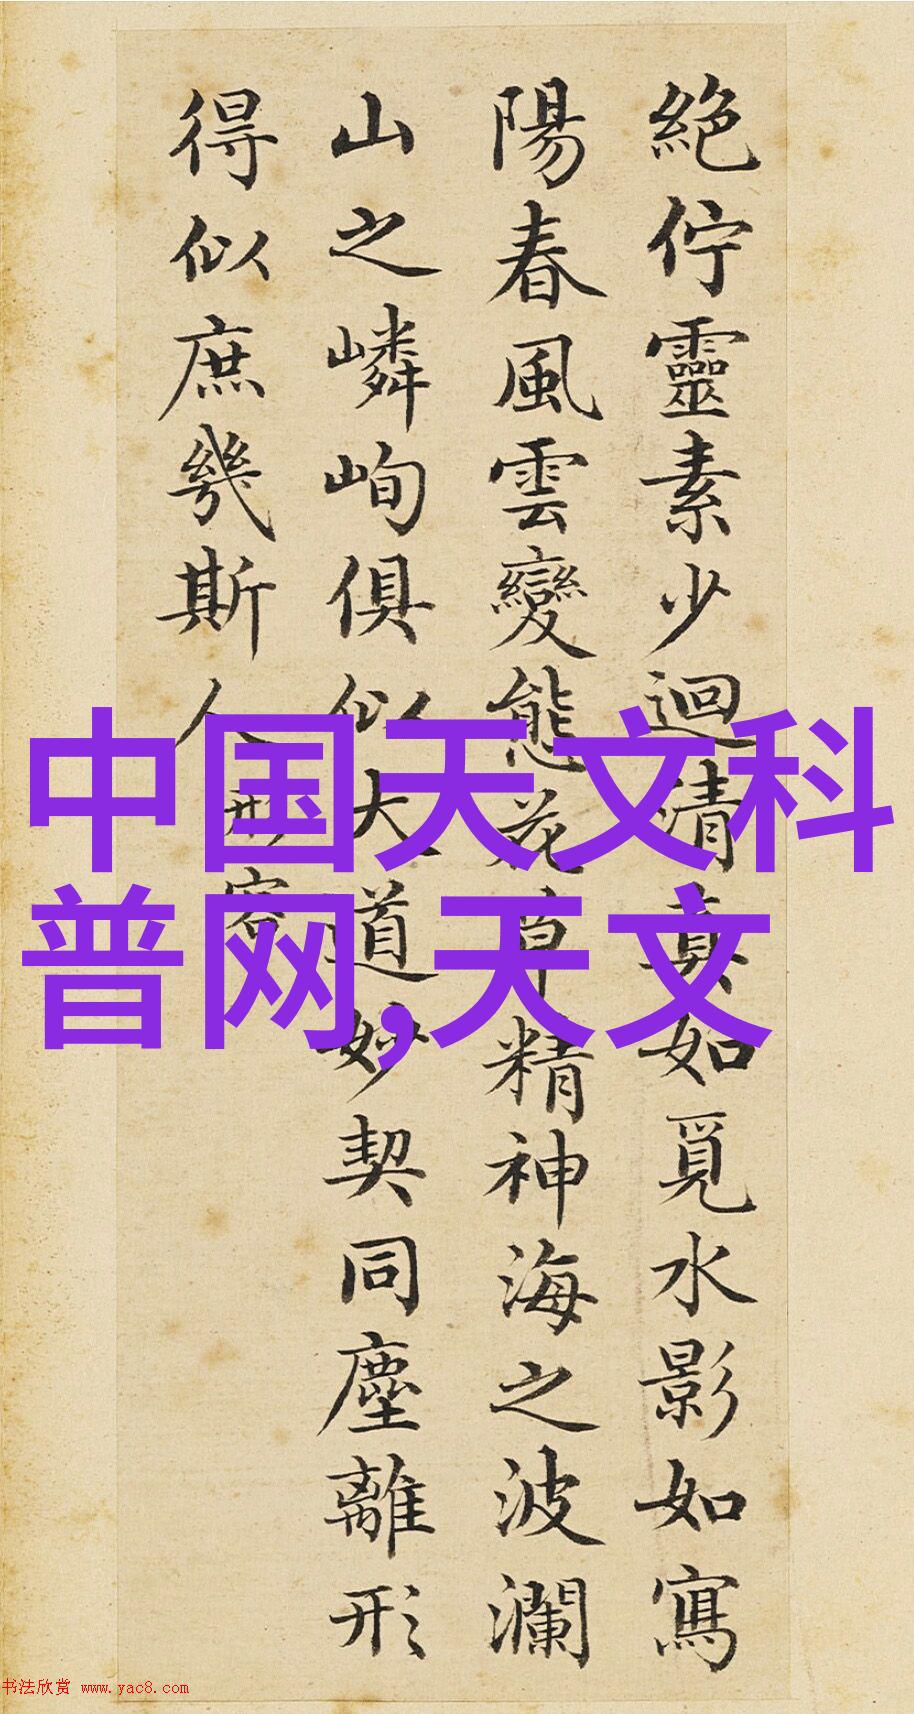 絶佇靈素少迴清真如覓水影如寫
陽春風雲變態花草精神海之波瀾
山之嶙峋俱似大道妙契同塵離形
得似庶幾斯人形容
中国天文科
普网,天文
书法欣赏 www.yac8.com